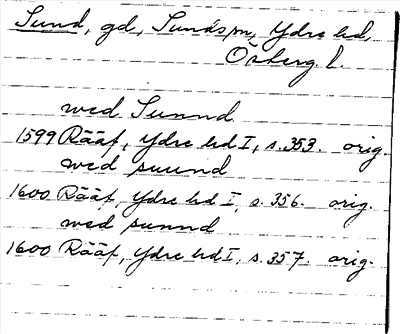 Sund, gd, Sunds sn, Ydre hd,
Österg. l.
wed Sunnd
1599 Rääf, Ydre hd I, s. 353. orig.
wed suund
1600 Rääf, Ydre hd I, s. 356. orig.
wed sunnd
1600 Rääf, Ydre hd I, s. 357. orig.